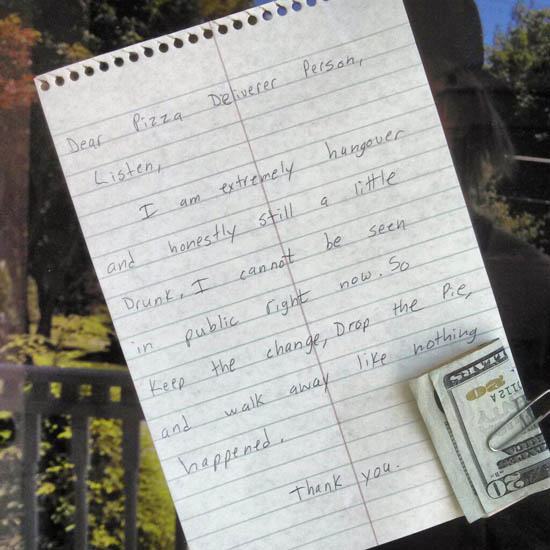 Dear Pizza Deliverer Person,
Listen,
I am extremely hangover
and honestly still a little
Drunk, I cannot be seen
in public right now. So
Keep the change, Drop the Pie,
and walk away like nothing
happened.
Thank you.
20
20